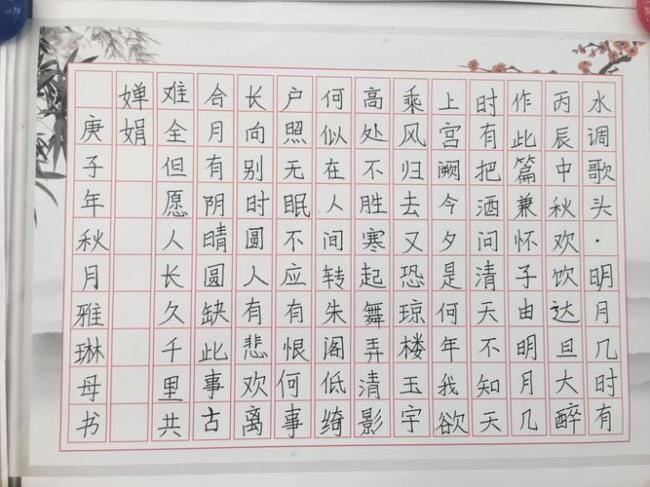 水调歌头·明月几时有
丙辰中秋欢饮达旦大醉
作此篇兼怀子由明月几
时有把酒问清天不知天
上宫阙今夕是何年我欲
乘风归去又恐琼楼玉宇
高处不胜寒起舞弄清影
何似在人间转朱阁低绮
户照无眠不应有恨何事
长向别时圆人有悲欢离
合月有阴晴圆缺此事古
难全但愿人长久千里共
婵娟
庚子年秋月雅琳母书